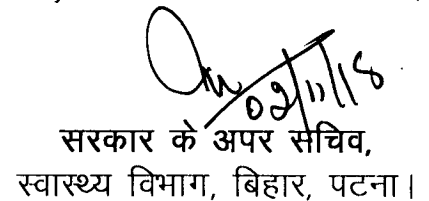 02/11/18
सरकार के अपर सचिव,
स्वास्थ्य विभाग, बिहार, पटना।